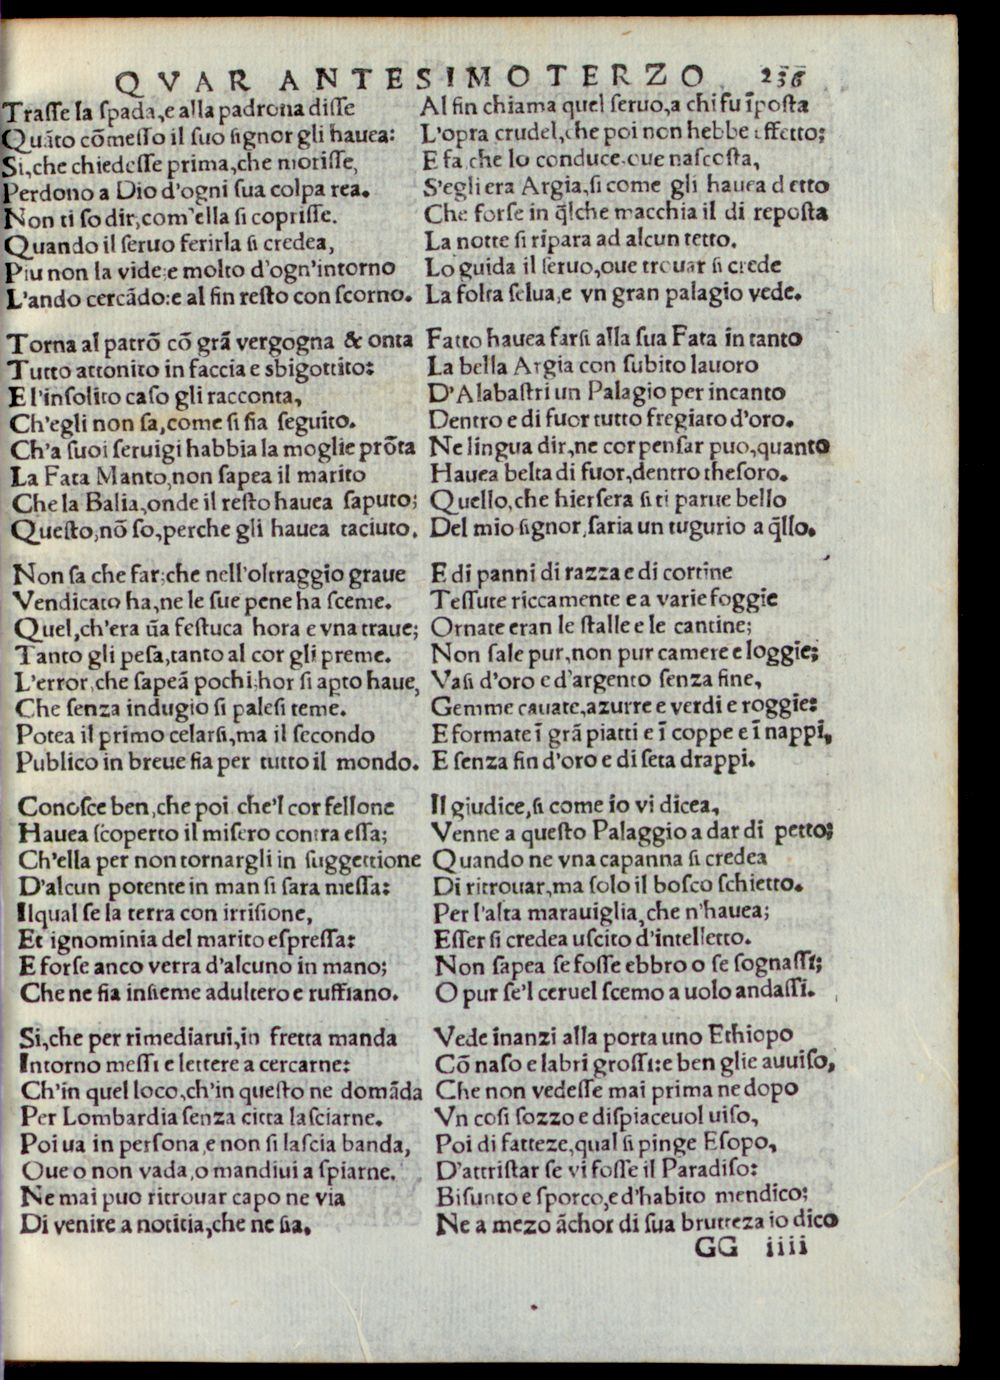 QVARANTESIMOTERZO 236
Trasse la spada, e alla padrona disse
Quāto cōmesso il suo signor gli hauea:
Si, che chiedesse prima, che morisse,
Perdono a Dio d'ogni sua colpa rea.
Non ti so dir, com'ella si coprisse.
Quando il seruo ferirla si credea,
Piu non la vide; e molto d'ogn'intorno
L'ando cercādo: e al fin resto con scorno.
Torna al patrō cō grā vergogna & onta
Tutto attonito in faccia e sbigottito:
E l'insolito caso gli racconta,
Ch'egli non sa, come si sia seguito.
Ch'a suoi seruigi habbia la moglie prōta
La Fata Manto, non sapea il marito
Che la Balia, onde il resto hauea saputo;
Questo, nō so, perche gli hauea taciuto.
Non sa che far; che nell'oltraggio graue
Vendicato ha, ne le sue pene ha sceme.
Quel, ch'era ūa festuca hora e vna traue;
Tanto gli pesa, tanto al cor gli preme.
L'error, che sapeā pochi; hor si apto haue,
Che senza indugio si palesi teme.
Potea il primo celarsi, ma il secondo
Publico in breue fia per tutto il mondo.
Conosce ben, che poi che'l cor fellone
Hauea scoperto il misero contra essa;
Ch'ella per non tornargli in suggettione
D'alcun potente in man si sara messa:
Ilqual se la terra con irrisione,
Et ignominia del marito espressa:
E forse anco verra d'alcuno in mano;
Che ne fia insieme adultero e ruffiano.
Si, che per rimediarui, in fretta manda
Intorno messi e lettere a cercarne:
Ch'in quel loco, ch'in questo ne domāda
Per Lombardia senza citta lasciarne.
Poi ua in persona, e non si lascia banda,
Oue o non vada, o mandiui a spiarne.
Ne mai puo ritrouar capo ne via
Di venire a notitia, che ne sia.
Al fin chiama quel seruo, a chi fu īposta
L'opra crudel, che poi non hebbe effetto;
E fa che lo conduce oue nascosta,
S'egli era Argia, si come gli hauea detto
Che forse in q̄lche macchia il di reposta
La notte si ripara ad alcun tetto.
Lo guida il seruo, oue trouar si crede
La folta selua, e vn gran palagio vede.
Fatto hauea farsi alla sua Fata in tanto
La bella Argia con subito lauoro
D'Alabastri un Palagio per incanto
Dentro e di fuor tutto fregiato d'oro.
Ne lingua dir, ne cor pensar puo, quanto
Hauea belta di fuor, dentro thesoro.
Quello, che hiersera si ti parue bello
Del mio signor, saria un tugurio a q̄llo.
E di panni di razza e di cortine
Tessute riccamente e a varie foggie
Ornate eran le stalle e le cantine;
Non sale pur, non pur camere e loggie;
Vasi d'oro e d'argento senza fine,
Gemme cauate, azurre e verdi e roggie:
E formate ī grā piatti e ī coppe e ī nappi,
E senza fin d'oro e di seta drappi.
Il giudice, si come io vi dicea,
Venne a questo Palaggio a dar di petto;
Quando ne vna capanna si credea
Di ritrouar, ma solo il bosco schietto.
Per l'alta marauiglia, che n'hauea;
Esser si credea uscito d'intelletto.
Non sapea se fosse ebbro o se sognassi;
O pur se'l ceruel scemo a uolo andassi.
Vede inanzi alla porta uno Ethiopo
Cō naso e labri grossi: e ben gli e auuiso,
Che non vedesse mai prima ne dopo
Vn cosi sozzo e dispiaceuol uiso,
Poi di fatteze, qual si pinge Esopo,
D'attristar se vi fosse il Paradiso:
Bisunto e sporco, e d'habito mendico;
Ne a mezo āchor di sua brutteza io dico
GG iiii